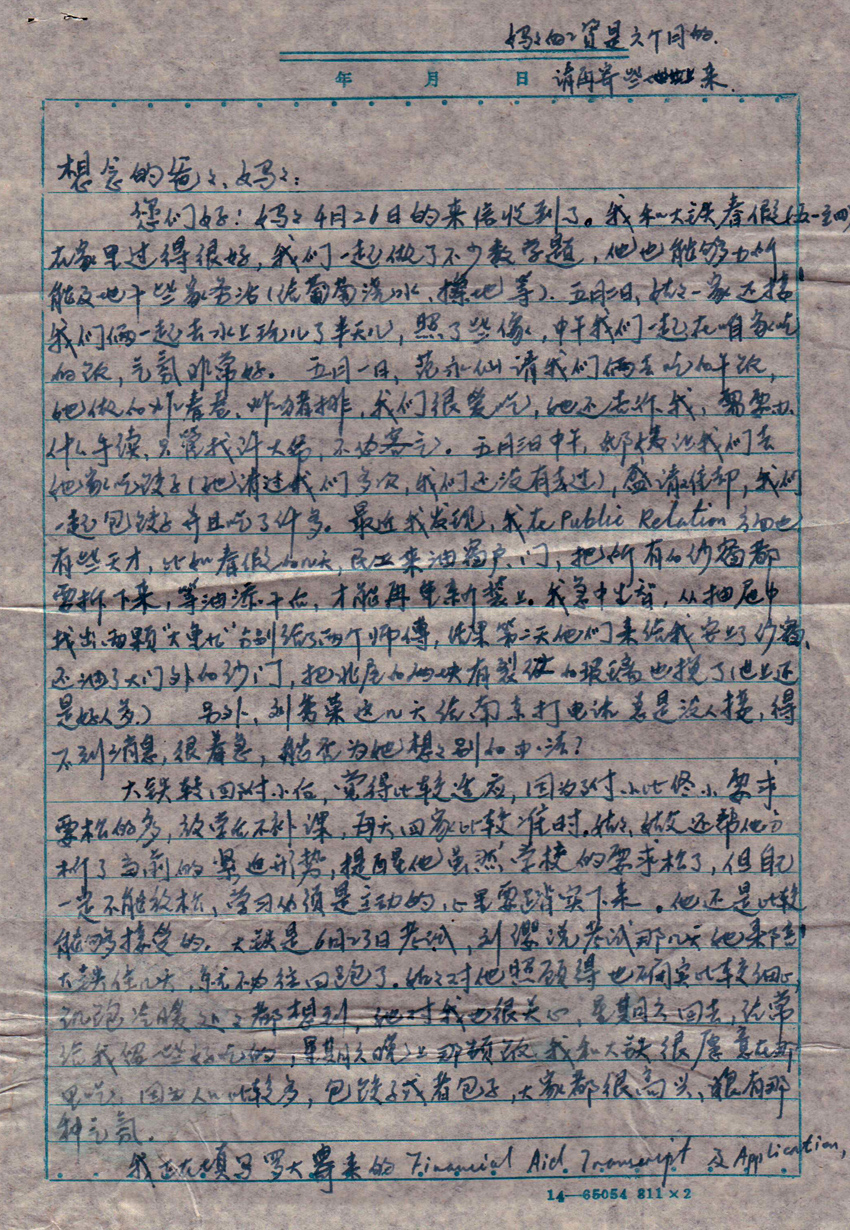 妈妈的工资是六个月的.
年 月 日 请再寄些来.
想念的爸爸、妈妈:
您们好!妈妈4月26日的来信收到了。我和大铁春假(五一至四)
在家里过得很好,我们一起做了不少数学题,他也能够力所
能及地干些家务活(给葡萄浇水、擦地等)。五月二日,姑姑一家还接
我们俩一起去水上玩儿了半天儿,照了些像,中午我们一起在咱家吃
的饭,气氛非常好。五月一日,范永仙请我们俩去吃的午饭,
她做的炸春卷、炸猪排,我们很爱吃,她还告诉我,需要办
什么手续,只管找许大伯,不必客气。五月三日中午,让我们去
她家吃饺子(她请过我们多次,我们还没有去过),盛请难却,我们
一起包饺子并且吃了许多。最近我发现,我在Public Relation方面也
有些天才,比如春假的几天,民工来油窗户、门,把所有的纱窗都
要拆下来,等油漆干后,才能再重新装上。我急中生智,从抽屉中
找出两颗"大重九"分别给了两个师傅,结果第二天他们来给我安上了纱窗,
还油了大门外的纱门,把北屋的两块有裂纹的玻璃也换了(世上还
是好人多)。另外,刘秀菜这几天给南京打电话总是没人接,得
不到消息,很着急,能否为她想想别的办法?
大铁转回附小后,觉得比较适应,因为附小比佟小要求
要松的多,放学后不补课,每天回家比较准时。姑姑、姑父还帮他分
析了当前的紧迫形势,提醒他虽然学校的要求松了,但自己
一定不能放松,学习必须是主动的,心里要踏实下来。他还是比较
能够接受的。大铁是6月23日考试,刘缨说考试那几天他来陪
大铁住几天,就不必往回跑了。姑姑对他照顾得也确实比较细心,
饥饱冷暖处处都想到,她对我也很关心,星期六回去,经常
给我留些好吃的,星期六晚上那顿饭我和大铁很愿意在那
里吃,因为人比较多,包饺子或者包子,大家都很高兴,很有那
种气氛。
我正在填写罗大寄来的Financial Aid Transcript及Application,
14—65054 811×2